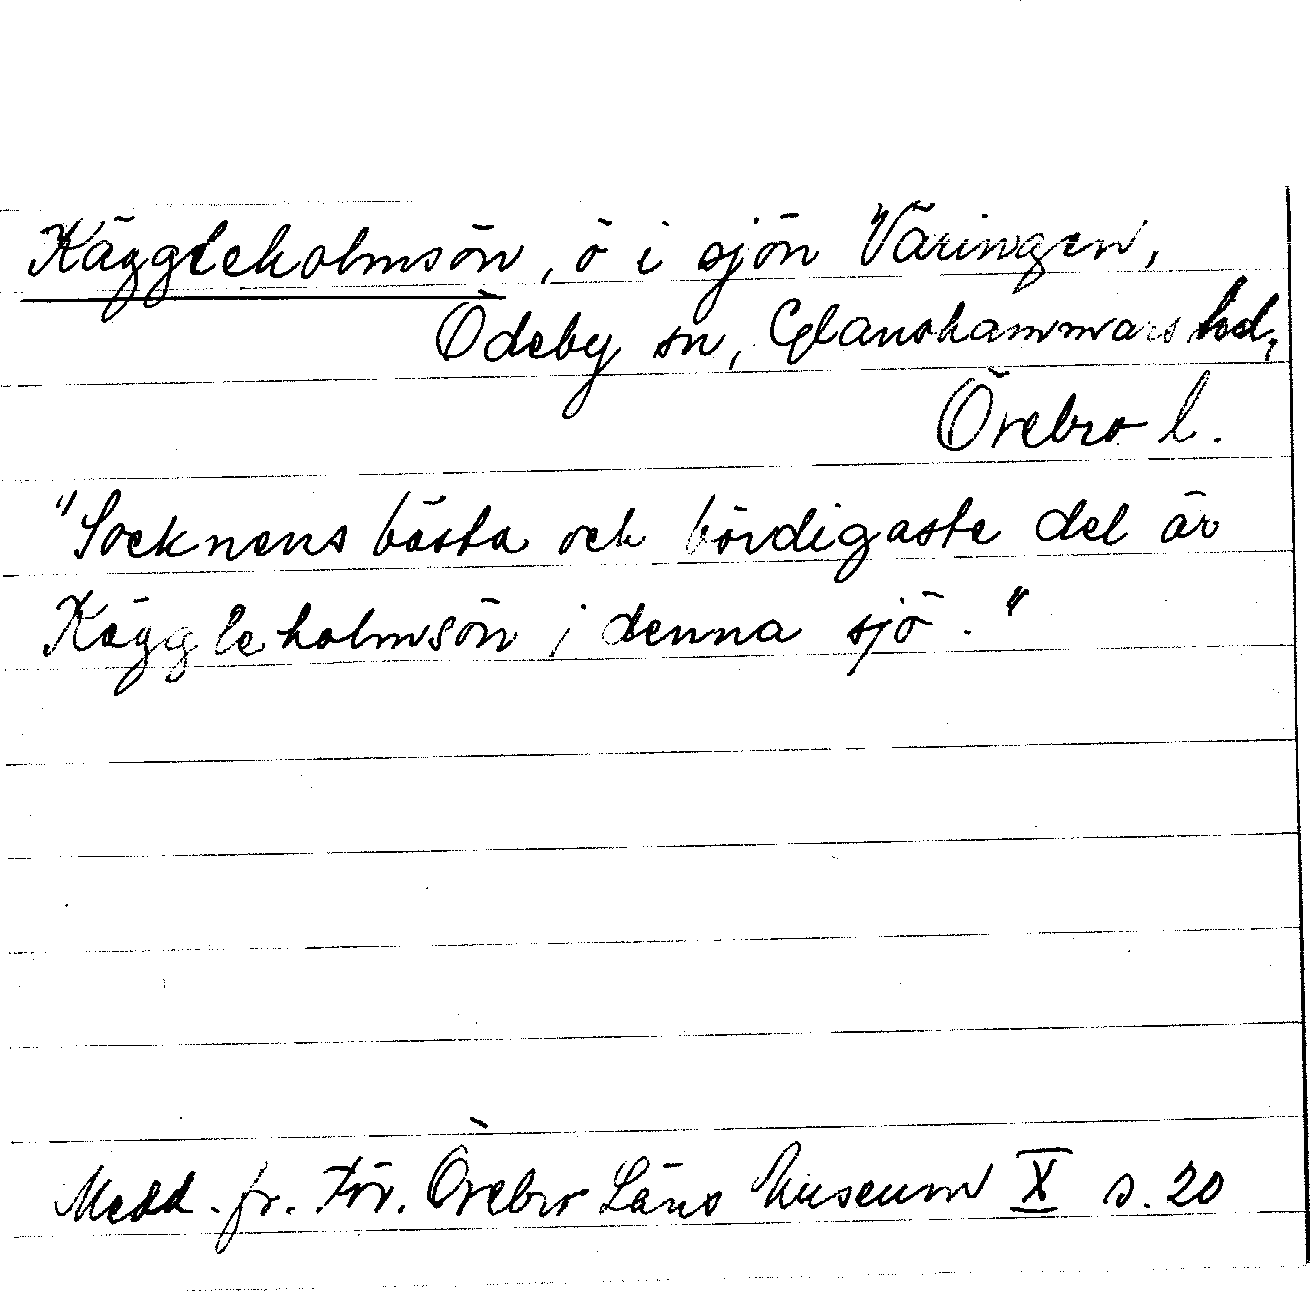 Käggleholmsön, ö i sjön Väringen,
Ödeby sn, Glanshammars hd,
Örebro l.
"Socknens bästa och bördigaste del är
Käggleholmsön i denna sjö."
Medd. fr. För. Örebro Läns Museum X s. 20